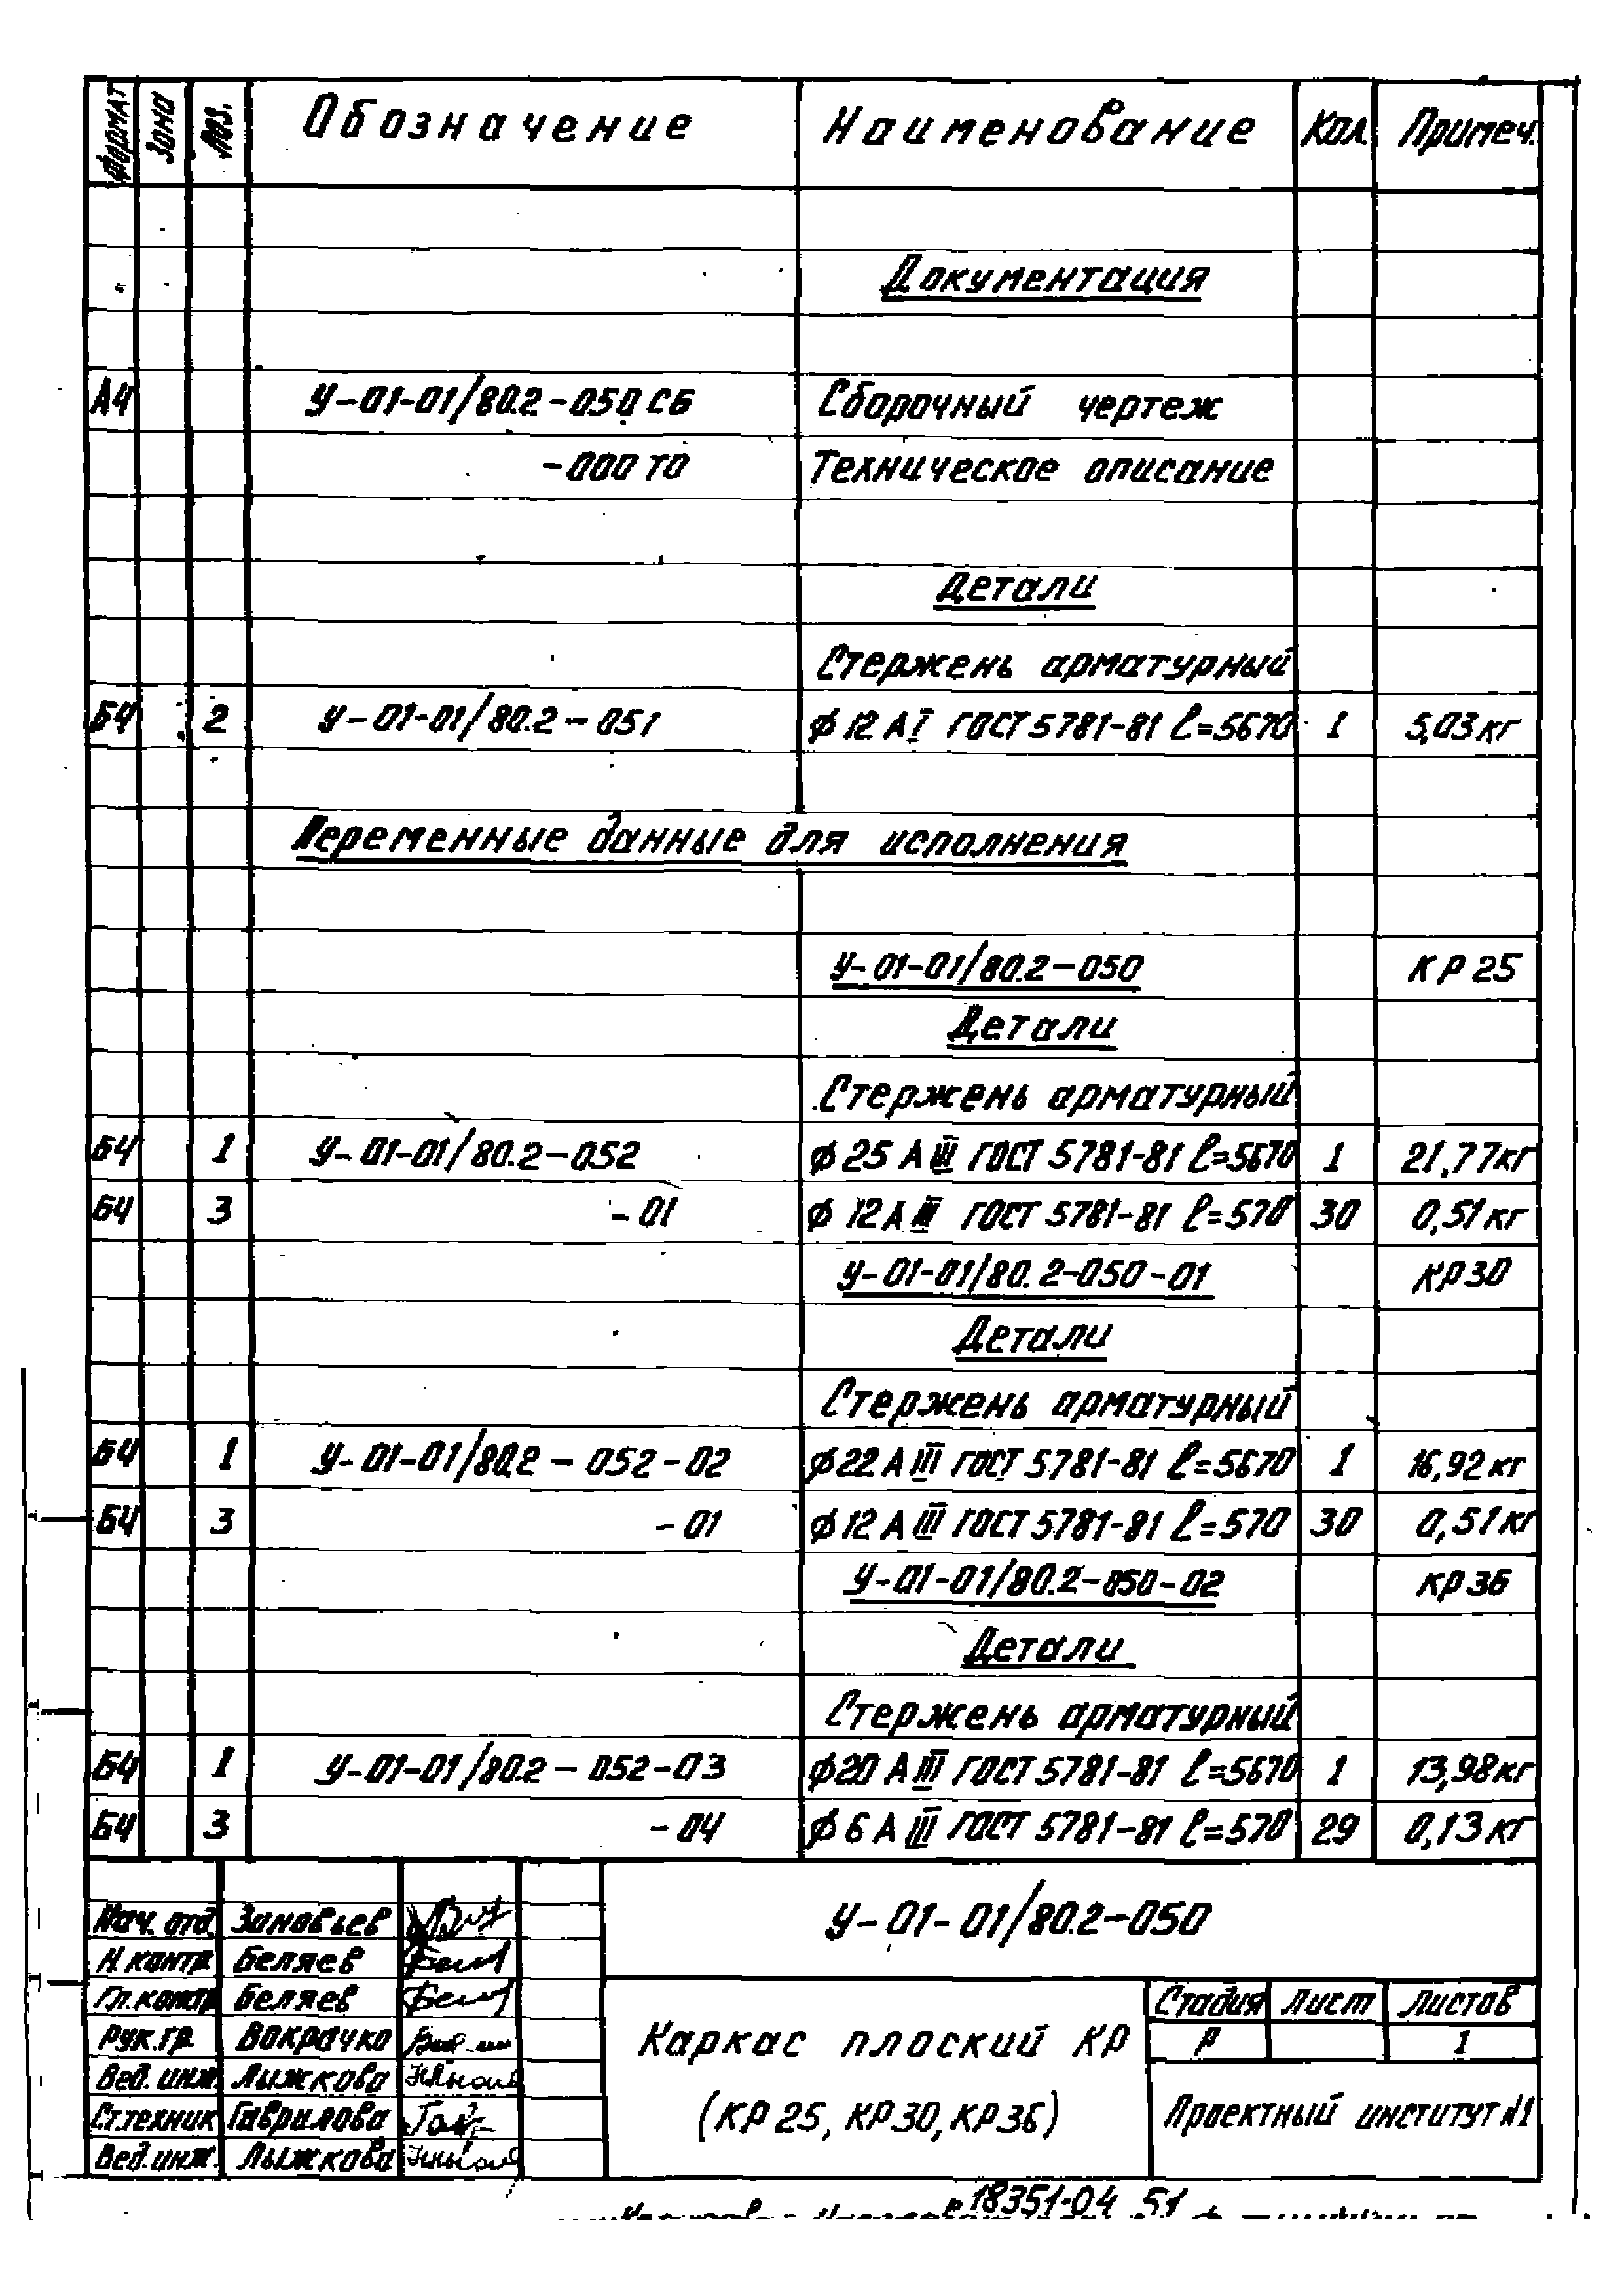 Формат Зона Поз. Обозначение Наименование Кол. Примеч.
Документация
А4 У-01-01/80.2-050 СБ Сборочный чертеж
-000 ТО Техническое описание
Детали
Стержень арматурный
БЧ 2 У-01-01/80.2-051 ϕ12 АI ГОСТ 5781-81 ℓ=5670 1 5,03 кг
Переменные данные для исполнения
У-01-01/80.2-050 КР25
Детали
Стержень арматурный
БЧ 1 У-01-01/80.2-052 ϕ25 АIII ГОСТ 5781-81 ℓ=5670 1 21,77 кг
БЧ 3 -01 ϕ12 АIII ГОСТ 5781-81 ℓ=570 30 0,51 кг
У-01-01/80.2-050-01 КР30
Детали
Стержень арматурный
БЧ 1 У-01-01/80.2-052-02 ϕ22 АIII ГОСТ 5781-81 ℓ=5670 1 16,92 кг
БЧ 3 -01 ϕ12 АIII ГОСТ 5781-81 ℓ=570 30 0,51 кг
У-01-01/80.2-050-02 КР36
Детали
Стержень арматурный
БЧ 1 У-01-01/80.2-052-03 ϕ20 АIII ГОСТ 5781-81 ℓ=5670 1 13,98 кг
БЧ 3 -04 ϕ6 АIII ГОСТ 5781-81 ℓ=570 29 0,13 кг
Нач. отд. Зиновьев
Н. контр. Беляев
Гл. контр. Беляев
Рук. гр. Вокрачко
Вед. инж. Лыжкова
Ст. техник Гаврилова
Вед. инж. Лыжкова
У-01-01/80.2-050
Каркас плоский КР
(КР25, КР30, КР36)
Стадия Лист Листов
Р 1
Проектный институт №1
18351-04 51